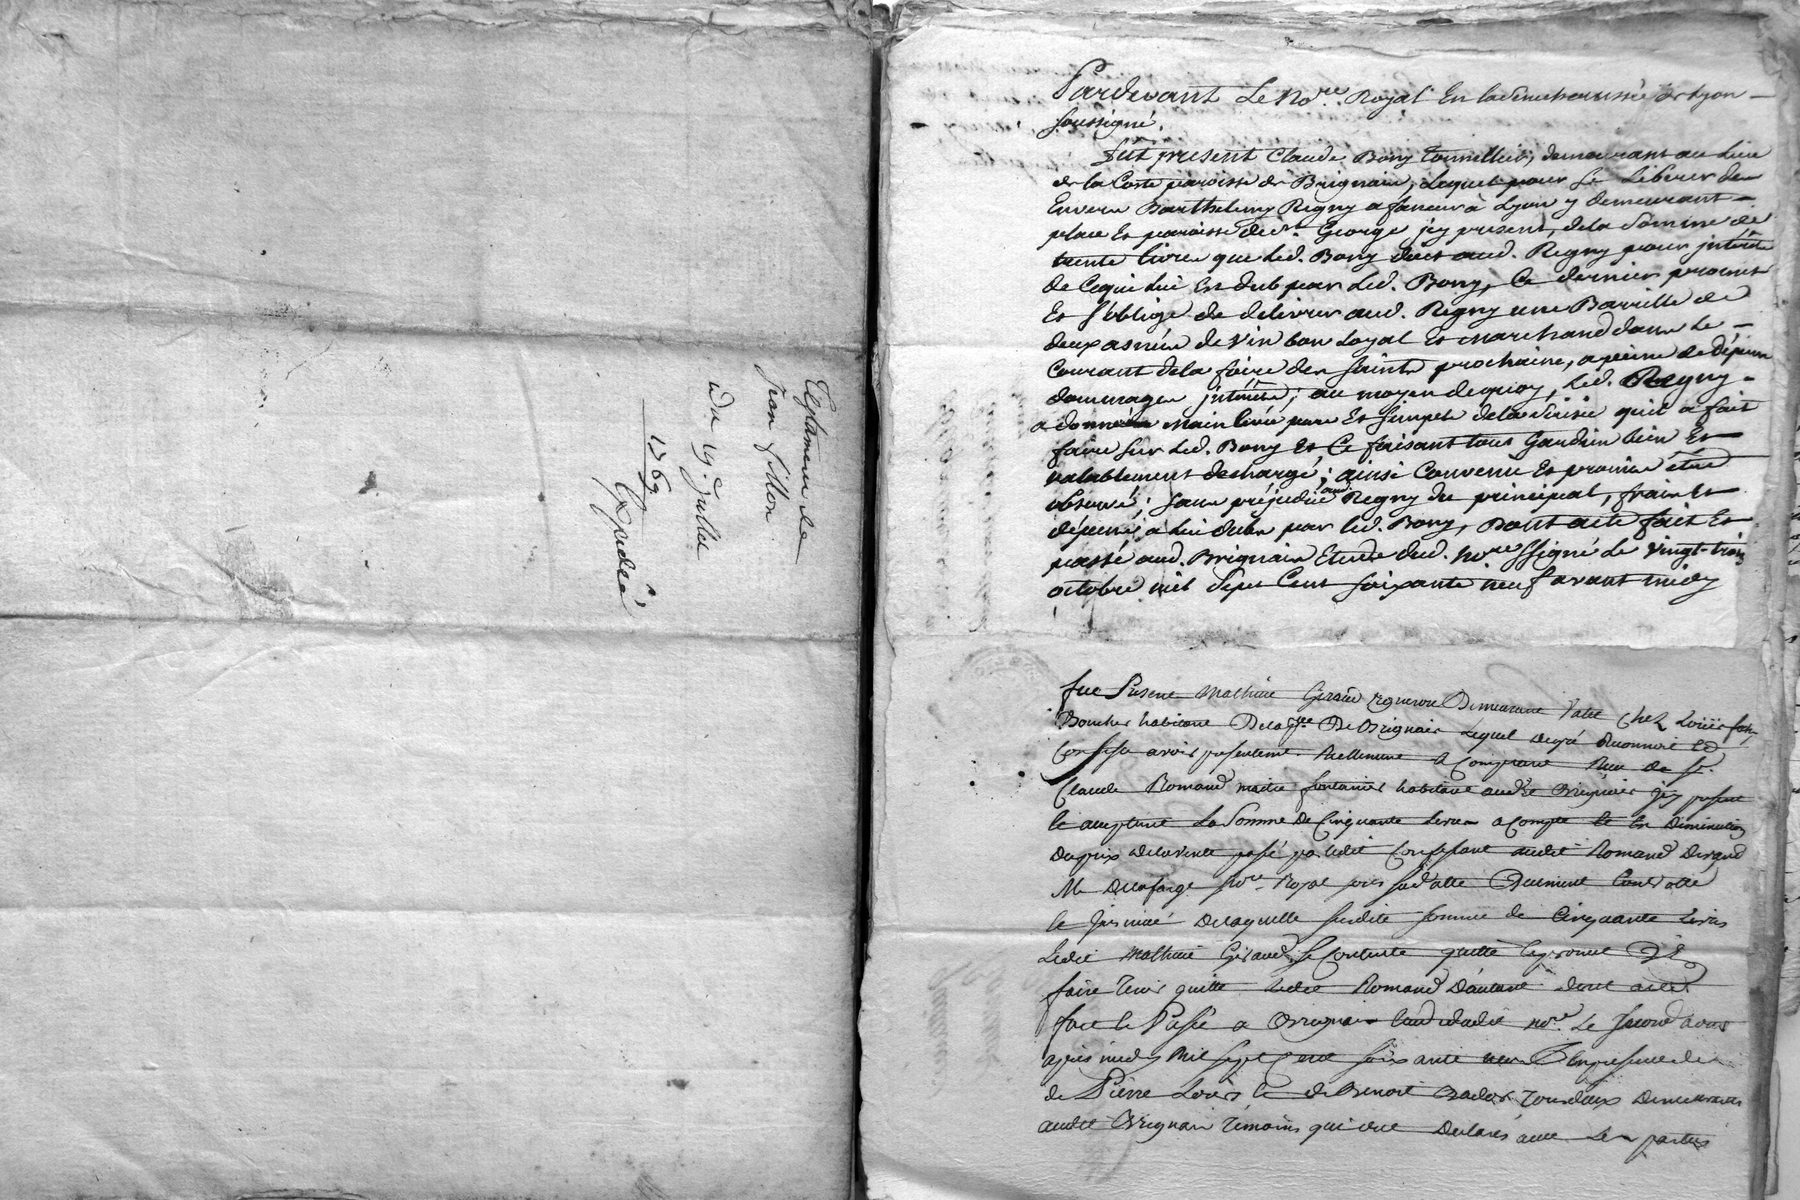 Testament de
Jean fillon
Du 19 Juillet
1769
Expedié
Pardevant Le No.re Royal En la senechaussée de Lyon
soussigné,
fut present Claude Bony tonnellier, demeurant au Lieu
de la Coste paroisse de Brignais, Lequel pour se Liberer
Envers Barthelemy Regny afaneur à Lyon y demeurant
place Et paroisse de St. George jcy present, de la Somme de
trente livres que Led. Bony doit aud. Regny pour jnterêts
de Ce qui lui Est dub par Led. Bony, Ce dernier promet
Et s'oblige de delivrer aud. Regny une Barrille de
deux asnées de Vin bon Loyal Et marchand dans Le
Courant de la foire des saints prochaine, a peine de dépens
dommages jnterêts; au moyen de quoy, Led. Regny
a donné main levée pure Et simple de la saisie qu'il a fait
faire sur Led. Bony Et Ce faisant tout Gardien bien Et
valablement dechargé; ainsi Convenu Et promis être
observé; sans préjudice aud. Regny du principal, frais Et
dépens a lui dubs par led. Bony, Dont acte fait Et
passé aud. Brignais Etude dud. no.re ssigné Le vingt-trois
octobre mil sept Cent soixante neuf avant midy
fut Present Mathieu Giraud vigneron Demeurant Valet chez Louis
Boucher habitant De la p.sse De Brignais Lequel de gré reconnoit Et
Confesse avoir presentement reellement Et Comptant Reçu de Sr.
Claude Romand maitre fontainier habitant audit Brignais jcy present
Et acceptant La Somme De Cinquante Livres a Compte Et En Diminution
Du prix de la vente passé par ledit Confessant audit Romand Devant
Me Delaforge No.re Royal sous sa datte Duement Controllé
Et Jnsinué De laquelle susdite somme de Cinquante Livres
Ledit Mathieu Giraud se Contente quitte Et promet D'En
faire tenir quitte ledit Romand D'autant dont acte
fait Et Passé a Brignais Etude dudit no.re Le second avril
après midy Mil sept Cent soixante neuf En presence de
de Pierre Et de Benoit Demeurants
audit Brignais témoins qui ont Declarés avec Les parties